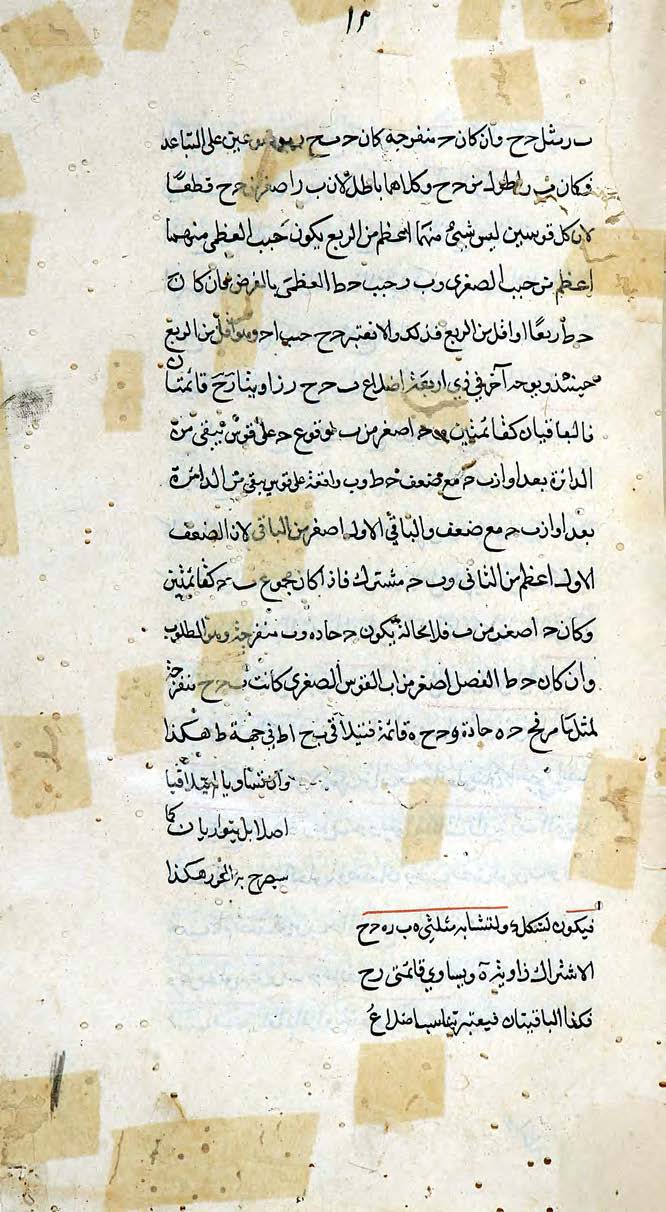 ١٢
ب ر مثل ح ح وان كان ح منفرجة كان ح على التباعد
فكان ب ر اطول من ح ح وكلاهما باطل لان ب ر اصغر من ح ح قطعا
لان كل قوسين ليس شيئ منهما اعظم من الربع يكون جيب العظمى منهما
اعظم من جيب الصغرى و ب ر جيب ح ط العظمى بالفرض فان كان
ح ط ربعا او اقل من الربع فذلك والا نعتبر ح ح جيب ا ح وهو اقل من الربع
حينئذ وبوجه آخر في ذي اربعة اضلاع ب ح ح ر زاويتا ر ح قائمتان
فالباقيان كقائمتين و ح اصغر من ب لوقوع ح على قوس يبقى من
الدائرة بعد او از ب ح مع ضعف ح ط و ب واقعة على قوس يبقى من الدائرة
بعد او از ب ح مع ضعف والباقي الاول اصغر من الباقي لان الضعف
الاول اعظم من الثاني و ب ح مشترك فاذا كان مجموع ب ح كقائمتين
وكان ح اصغر من ب فلا محالة يكون ح حاده و ب منفرجة وهو المطلوب
وان كان ح ط الفصل اصغر من اب القوس الصغرى كانت ب ح ح منفرجة
لمثل ما مر فح ح ه حادة و ح ح ه قائمة فيتلاقى ب ح ا ط في جهة ط هكذا
وان تساويا لم يتلاقيا
اصلا بل يتوازيان كما
سيصرح به المحرر هكذا
فيكون لشكل ولتشابه مثلثي ه ب ر ه ح ح
الاشتراك زاوية ه ويساوي قائمتي ر ح
فكذا الباقيتان فيعتبر تناسب اضلاع